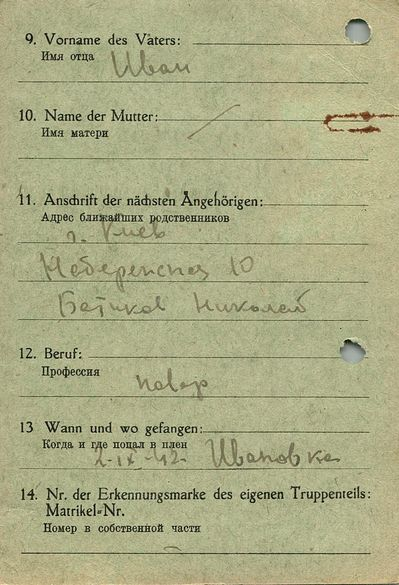 9. Vorname des Vaters:
Имя отца Иван
10. Name der Mutter:
Имя матери
11. Anschrift der nächsten Angehörigen:
Адрес ближайших родственников
г. Киев
Набережная 10
Николай
12. Beruf:
Профессия повар
13 Wann und wo gefangen:
Когда и где попал в плен
2-IX-42. Ивановка
14. Nr. der Erkennungsmarke des eigenen Truppenteils:
Matrikel-Nr.
Номер в собственной части